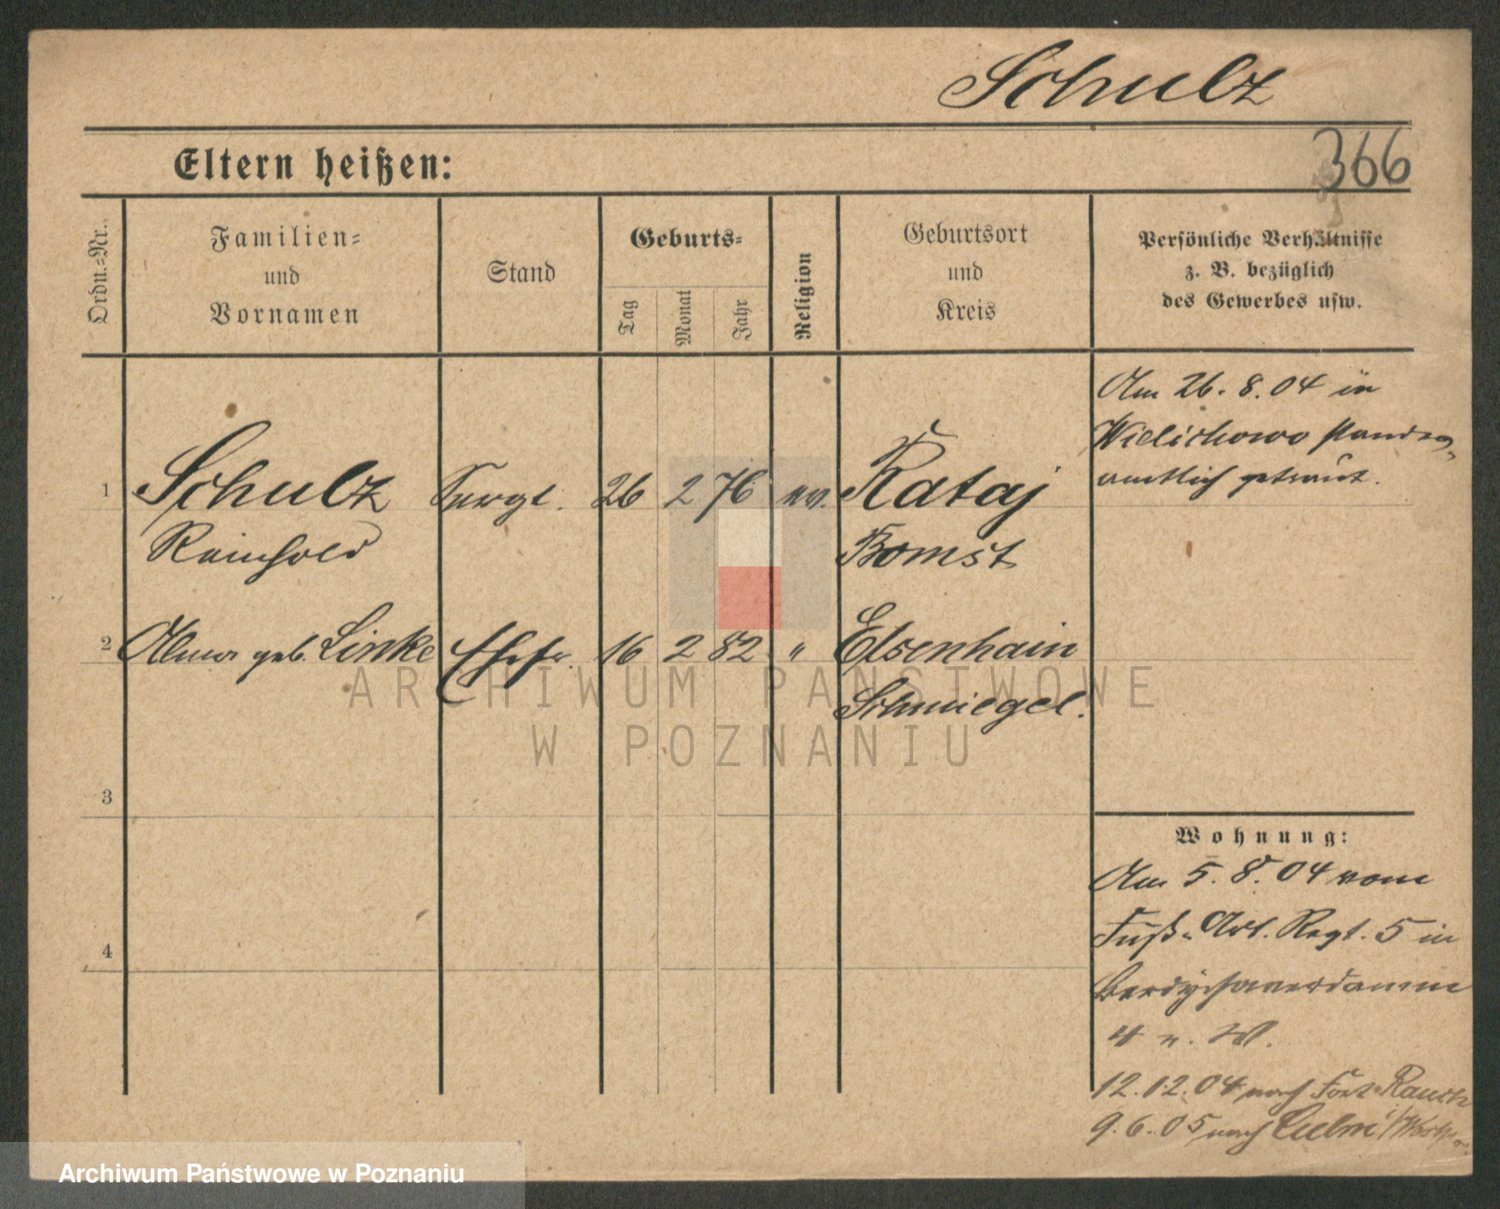 Schulz
Eltern heißen:
366
Ordn.-Nr.
Familien-
und
Vornamen
Stand
Geburts-
Tag
Monat
Jahr
Religion
Geburtsort
und
Kreis
Persönliche Verhältnisse
z. B. bezüglich
des Gewerbes usw.
Am 26. 8. 04 in
Wielichowo standes-
amtlich getraut.
1 Schulz Sergt. 26 2 76 ev. Rataj
Reinhold Bomst
2 Alma geb. Linke Ehefr. 16 2 82 " Elsenhain
Schmiegel.
3
4
Wohnung:
Am 5. 8. 04 vom
Fuß-Art. Regt. 5 in
Berdychowerdamm
4 n. W.
12. 12. 04 nach Fort Rauch
9. 6. 05 nach Culm
ARCHIWUM PAŃSTWOWE
W POZNANIU
Archiwum Państwowe w Poznaniu